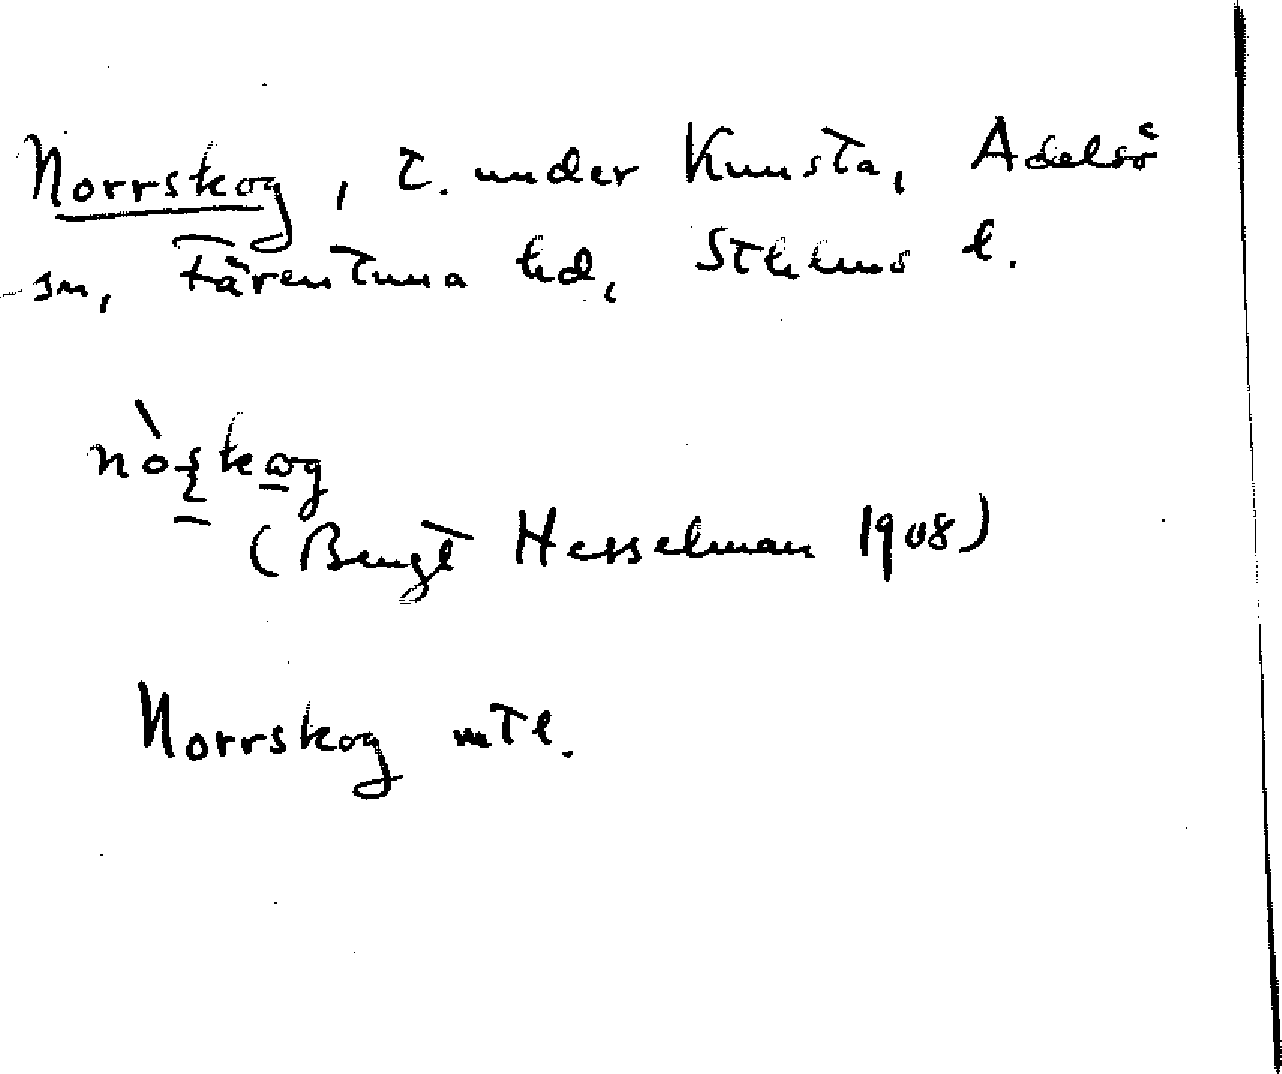 Norrskog, t. under Kunsta, Adelsö
sn, Färentuna hd, Sthlms l.
(Bengt Hesselman 1908)
Norrskog mtl.